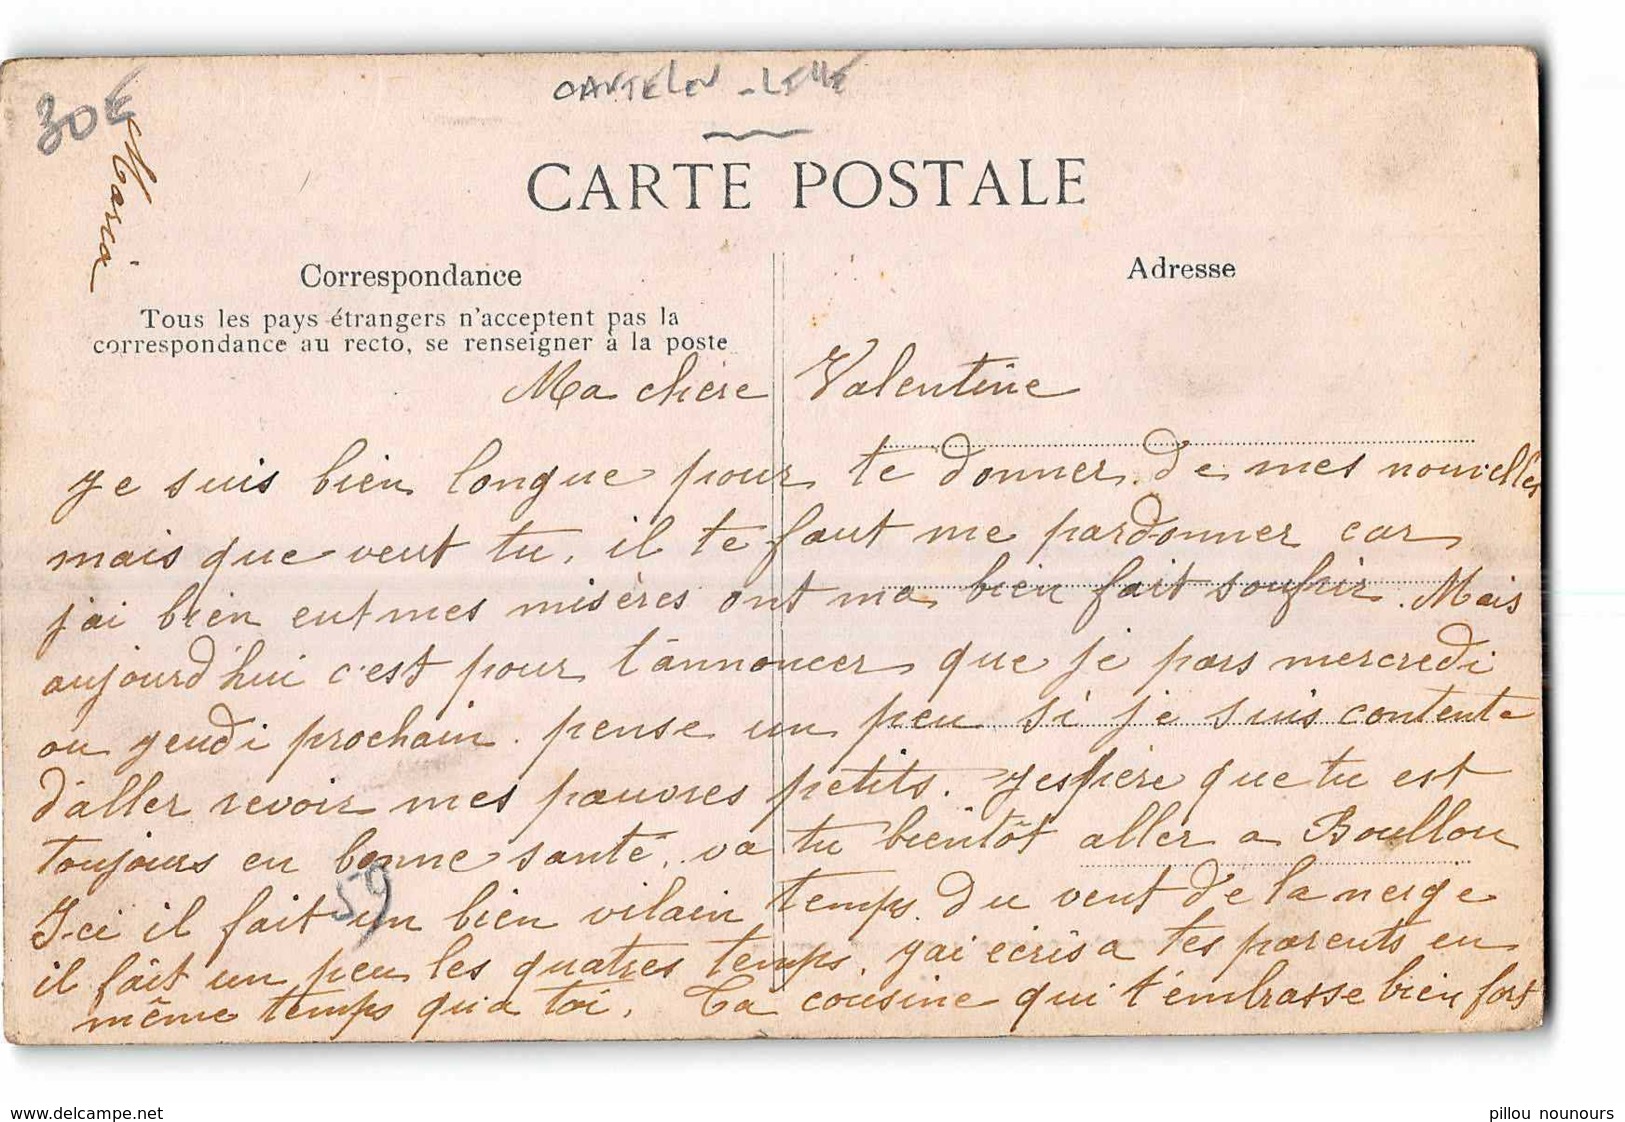 30€
CANTELEU - LILLE
CARTE POSTALE
Correspondance
Adresse
Tous les pays étrangers n'acceptent pas la
correspondance au recto, se renseigner à la poste
Ma chère Valentine
Je suis bien longue pour te donner de mes nouvelles
mais que veut tu, il te faut me pardonner car
j'ai bien eut mes misères ont ma bien fait soufrir. Mais
aujourd'hui c'est pour t'annoncer que je pars mercredi
ou jeudi prochain. pense un peu si je suis contente
d'aller revoir mes pauvres petits. J'espère que tu est
toujours en bonne santé. va tu bientôt aller a Boullou
Ici il fait un bien vilain temps. Du vent de la neige
il fait un peu les quatres temps. j'ai écris a tes parents en
même temps qu'a toi. Ta cousine qui t'embrasse bien fort
Maria
59
www.delcampe.net
pillou nounours